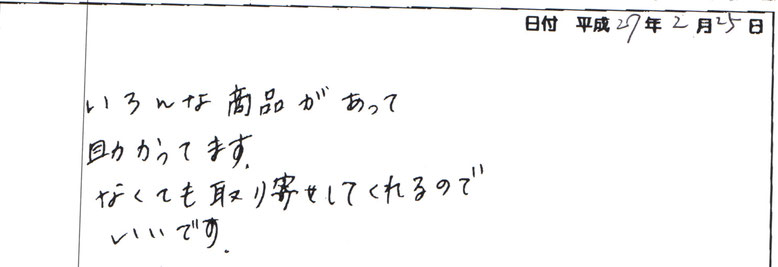 日付 平成27年2月25日
いろんな商品があって
助かってます.
なくても取り寄せしてくれるので
いいです.